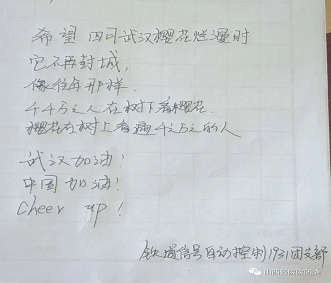 希望 四月武汉樱花烂漫时
它不再封城，
像往年那样.
千千万之人在树下看樱花.
樱花在树上看遍千之万之的人
武汉加油！
中国加油！
Cheer up！
铁道信号自动控制1931团支部